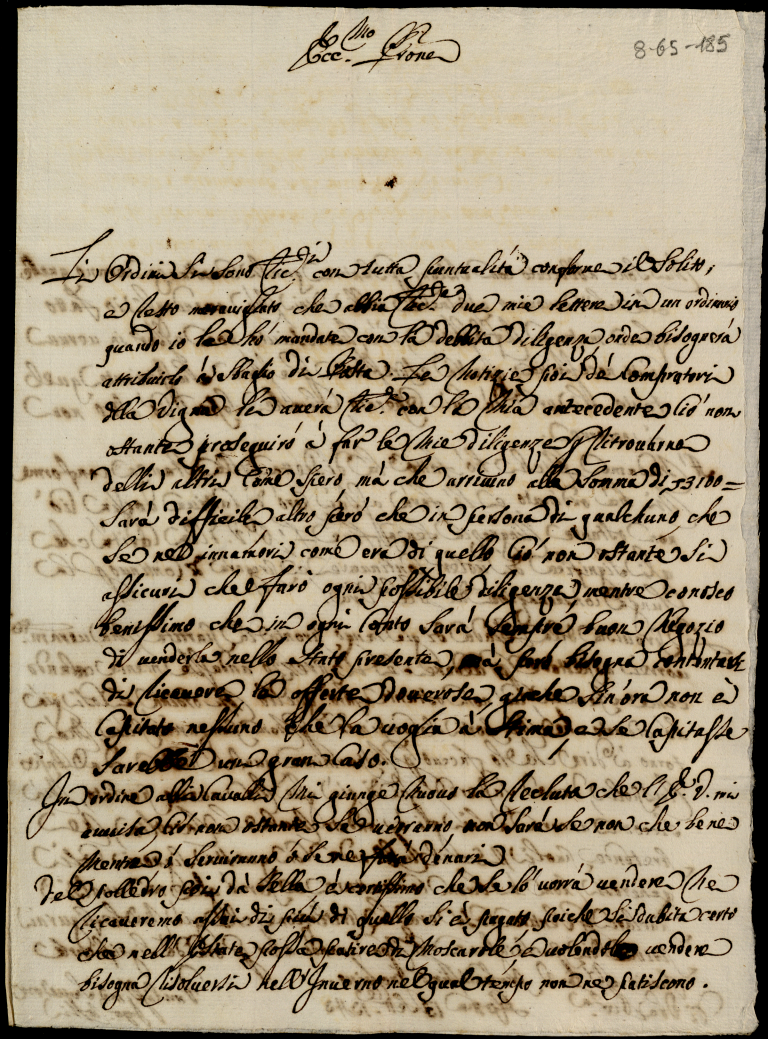 Ecc.mo Sr. Prone
8-65-185
Li Ordini Sin Sono Ric.di con tutta puntualità conforme il Solito,
e Resto meravigliato che abbia Ric.de due mie lettere in un ordinario
quando io le hò mandate con la debbita diligenza, onde bisognerà
attribuirlo à Sbaglio di Posta. Le Notizie poi dé Compratori
della Vigna le averà Ric.e con la Mia antecedente Ciò non
ostante proseguirò à far le Mie diligenze p Ritrovarne
delli altri Come Spero, mà che arrivino alla Somma di 3100=
Sarà difficile, altro però che in persona di qualchuno che
Se nell'innamori come era di quello Ciò non ostante Si
assicuri che farò ogni possibile diligenza, mentre conosco
benissimo che in ogni Conto Sarà Sempre buon Negozio
di venderla nello Stato presente, mà però bisogna Contentarsi
di Ricavere le offerte doverose, giache Sin'ora non è
Capitato nessuno che la voglia à Stima, e se Capitasse
Sarebbe un gran Caso.
In ordine alli Cavalli Mi giunge Nuovo la Recluta che V.E. mi
avvisa, Ciò non ostante Se verranno non Sarà se non che bene
Mentre ò Serviranno ò Se ne farà denari
Del Polledro poi da Sella è certissimo che Se lò vorrà vendere Ne
Ricaveremo assai di più di quello Si è pagato poiche Si dubita certo
che nell'Estate possa patire di Moscarole, e volendolo vendere
bisogna Risolversi nell'Inverno nel qual tempo non ne patiscono.